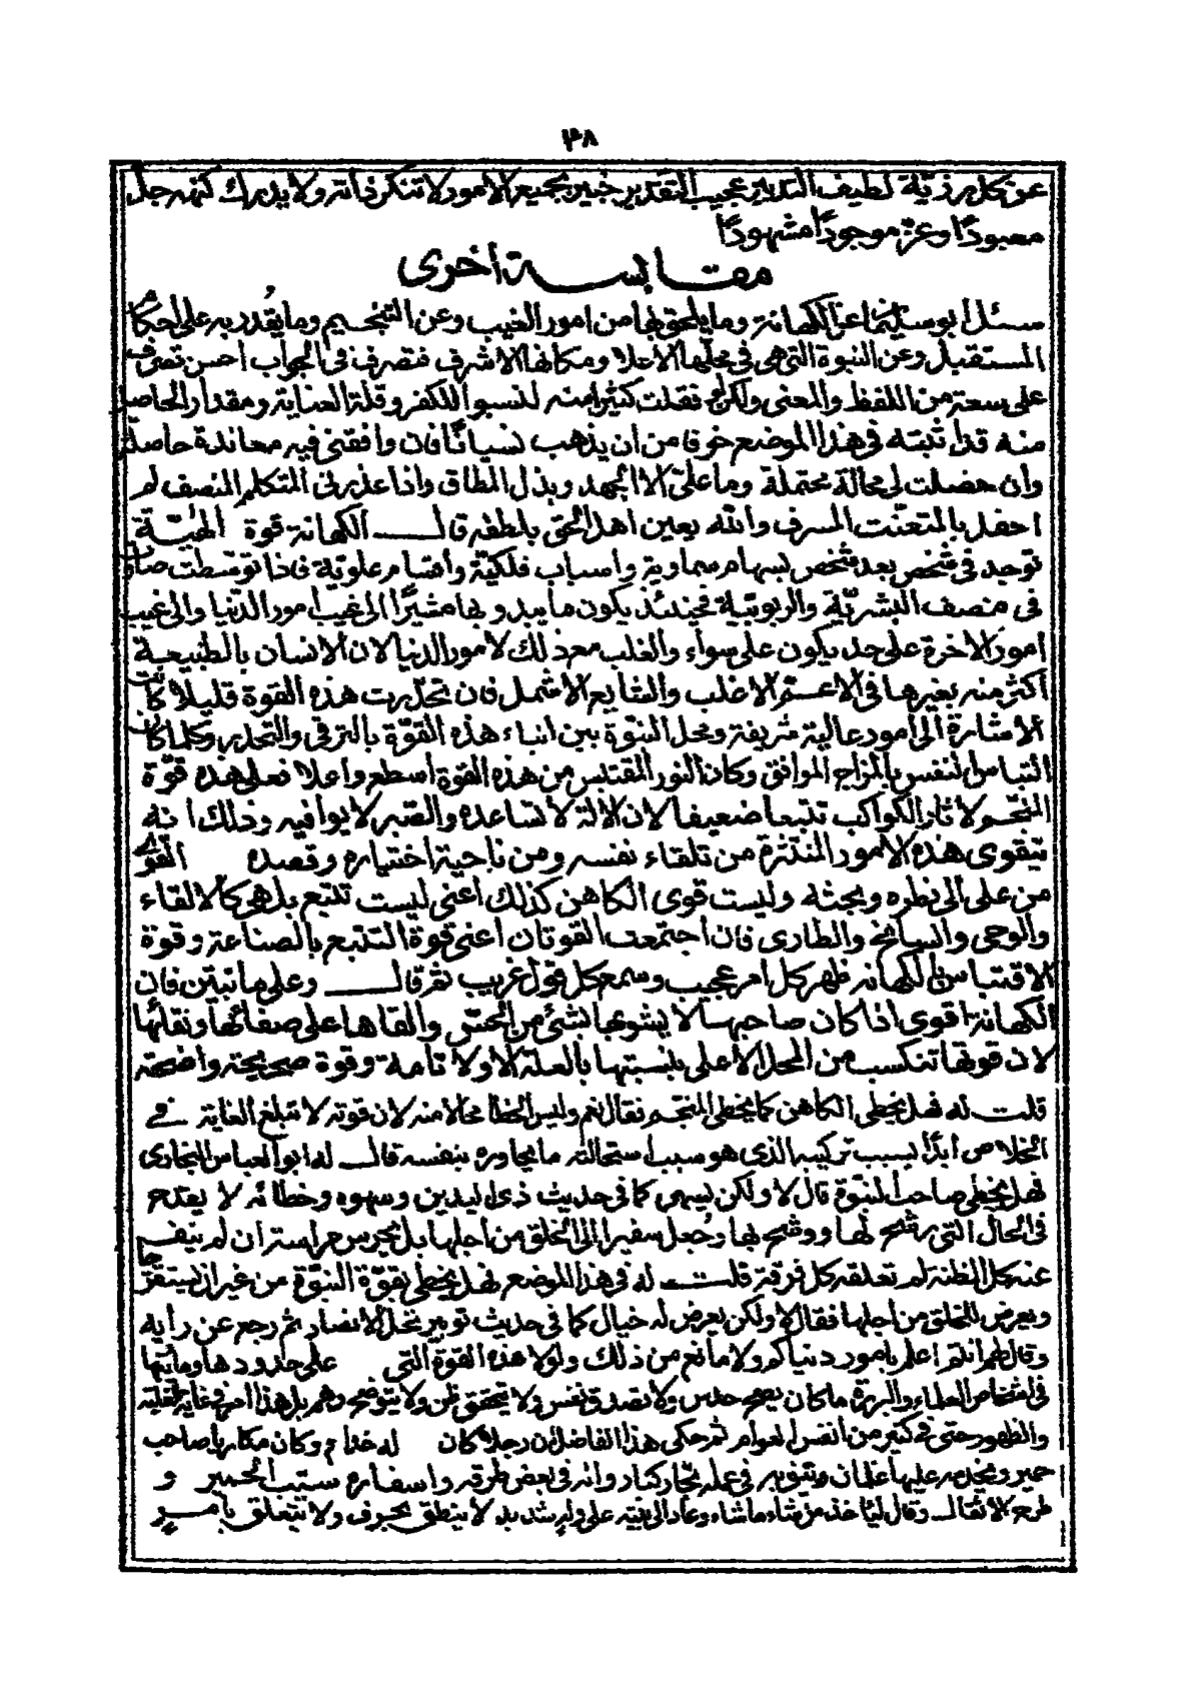 ٣٨
عن كل مرزية لطيف التدبير عجيب التقدير خبير بجميع الامور لا تنكر ذاته ولا يدرك كنهه جل
معبودًا وعز موجودًا مشهودًا
مقابسة أخرى
سئل أبو سليمان عن الكهانة وما يلحق بها من امور الغيب وعن التنجيم وما يُقدر به على احكام
المستقبل وعن النبوة التي هي في محلها الأعلا ومكانها الاشرف فتصرف في الجواب احسن تصرف
على سعة من اللفظ والمعنى ولكن نقلت كثيرا منه لنسبو اللكفر وقلة العناية ومقدار الحاصل
منه قد اثبته في هذا الموضع خوفا من ان يذهب نسيانًا فان وافقنى فيه معاندة حاصلة
وان حضلت لي محالة محتملة وما على الا الجهد وبذل المطاق واذا عذرنى المتكلم المنصف لم
احفل بالمتعنت المسرف والله يعين اهل الحق بلطفه قال الكهانة قوة الهيّة
توجد في شخص بعد شخص بسهام سماوية واسباب فلكيّة واقسام علويّة فاذا توسّطت صارت
في منصف البشريّة والربوبيّة فحينئذ يكون ما يبدو بها مشيرًا الى غيب امور الدنيا والى غيب
امور الاخرة على حد يكون على سواء والغلب مع ذلك لامور الدنيا لان الانسان بالطبيعة
أكثر منه بغيرها في الاعم الاغلب والشايع الاشمل فان تحدّرت هذه القوة قليلا كانت
الاشارة الى امور عالية شريفة ومحل النبوّة بين انباء هذه القوّة بالترقي والتحدر وكلما كان
التباس النفس بالمزاج الموافق وكان النور المقتبس من هذه القوة اسطع واعلا فعلى هذه قوّة
المنجم لاثار الكواكب تتبعا ضعيفا لان الالة لا تساعده والصبر لا يوافيه وذلك انه
يتقوى هذه الامور المنتثرة من تلقاء نفسه ومن ناحية اختياره وقصده القوى
من على الى نظره وبحثه وليست قوى الكاهن كذلك اعنى ليست تتبع بل هى كالالقاء
والوحى والسانح والطارى فان اجتمعت القوتان اعنى قوة التتبع بالصناعة وقوة
الاقتباس بالكهانه ظهر كل امر عجيب وسمع كل قول غريب ثم قال وعلى ما تبين فان
الكهانة اقوى اذا كان صاحبها لا يشوبها بشئ من الحس والقاها على صفائها ونقائها
لان قوتها تنكسب من المحل الاعلى بنسبتها بالعلة الاولا تامة وقوة صحيحة واضحة
قلت له فهل يخطى الكاهن كما يخطى المنجم فقال نعم وليس الخطا محالا منه لان قوته لا تبلغ الغاية في
الخلاص أبدًا بسبب تركيبه الذى هو سبب استحالته ما يجاوره بنفسه قال له ابو العباس البخارى
فهل يخطى صاحب النبوّة قال لا ولكن يسهى كما في حديث ذى اليدين وسهوه وخطائه لا يقدح
في الحال التى رشح لها ووشح بها وجعل سفيرا الى الخلق من اجلها بل يحرس حراسة ان لم تنفى
عنه كل الظنة لم تعلقه كل فرقة قلت له في هذا الموضع فهل يخطى بقوّة النبوّة من غير ان يستقر حا
ويعرض للخلق من اجلها فقال لا ولكن يعرض له خيال كما في حديث توبير نخل الانصار ثم رجع عن رأيه
وقال لهم انتم اعلم بامور دنياكم ولا مانع من ذلك ولولا هذه القوة التى على حدودها وماتبتها
في اشخاص العلماء والبررة ما كان يصح حدس ولا تصدق نفس ولا يتحقق ظن ولا يتوضح وهم بل هذا امر في غاية
والظهور حتى في كثير من انفس العوام ثم حكى هذا الفاضل ان رجلا كان له خدام وكان مكاريا صاحب
حمير ويخدمه عليها غلمان وينوبه في عمله تجار كبار وانه في بعض طرقه واسفاره سيّب الحمير و
طرح الاثقال وقال لنا خذ من شاء ما شاء وعاد الى بيته على وله شديد لا ينطق بحرف ولا يتعلق بامر